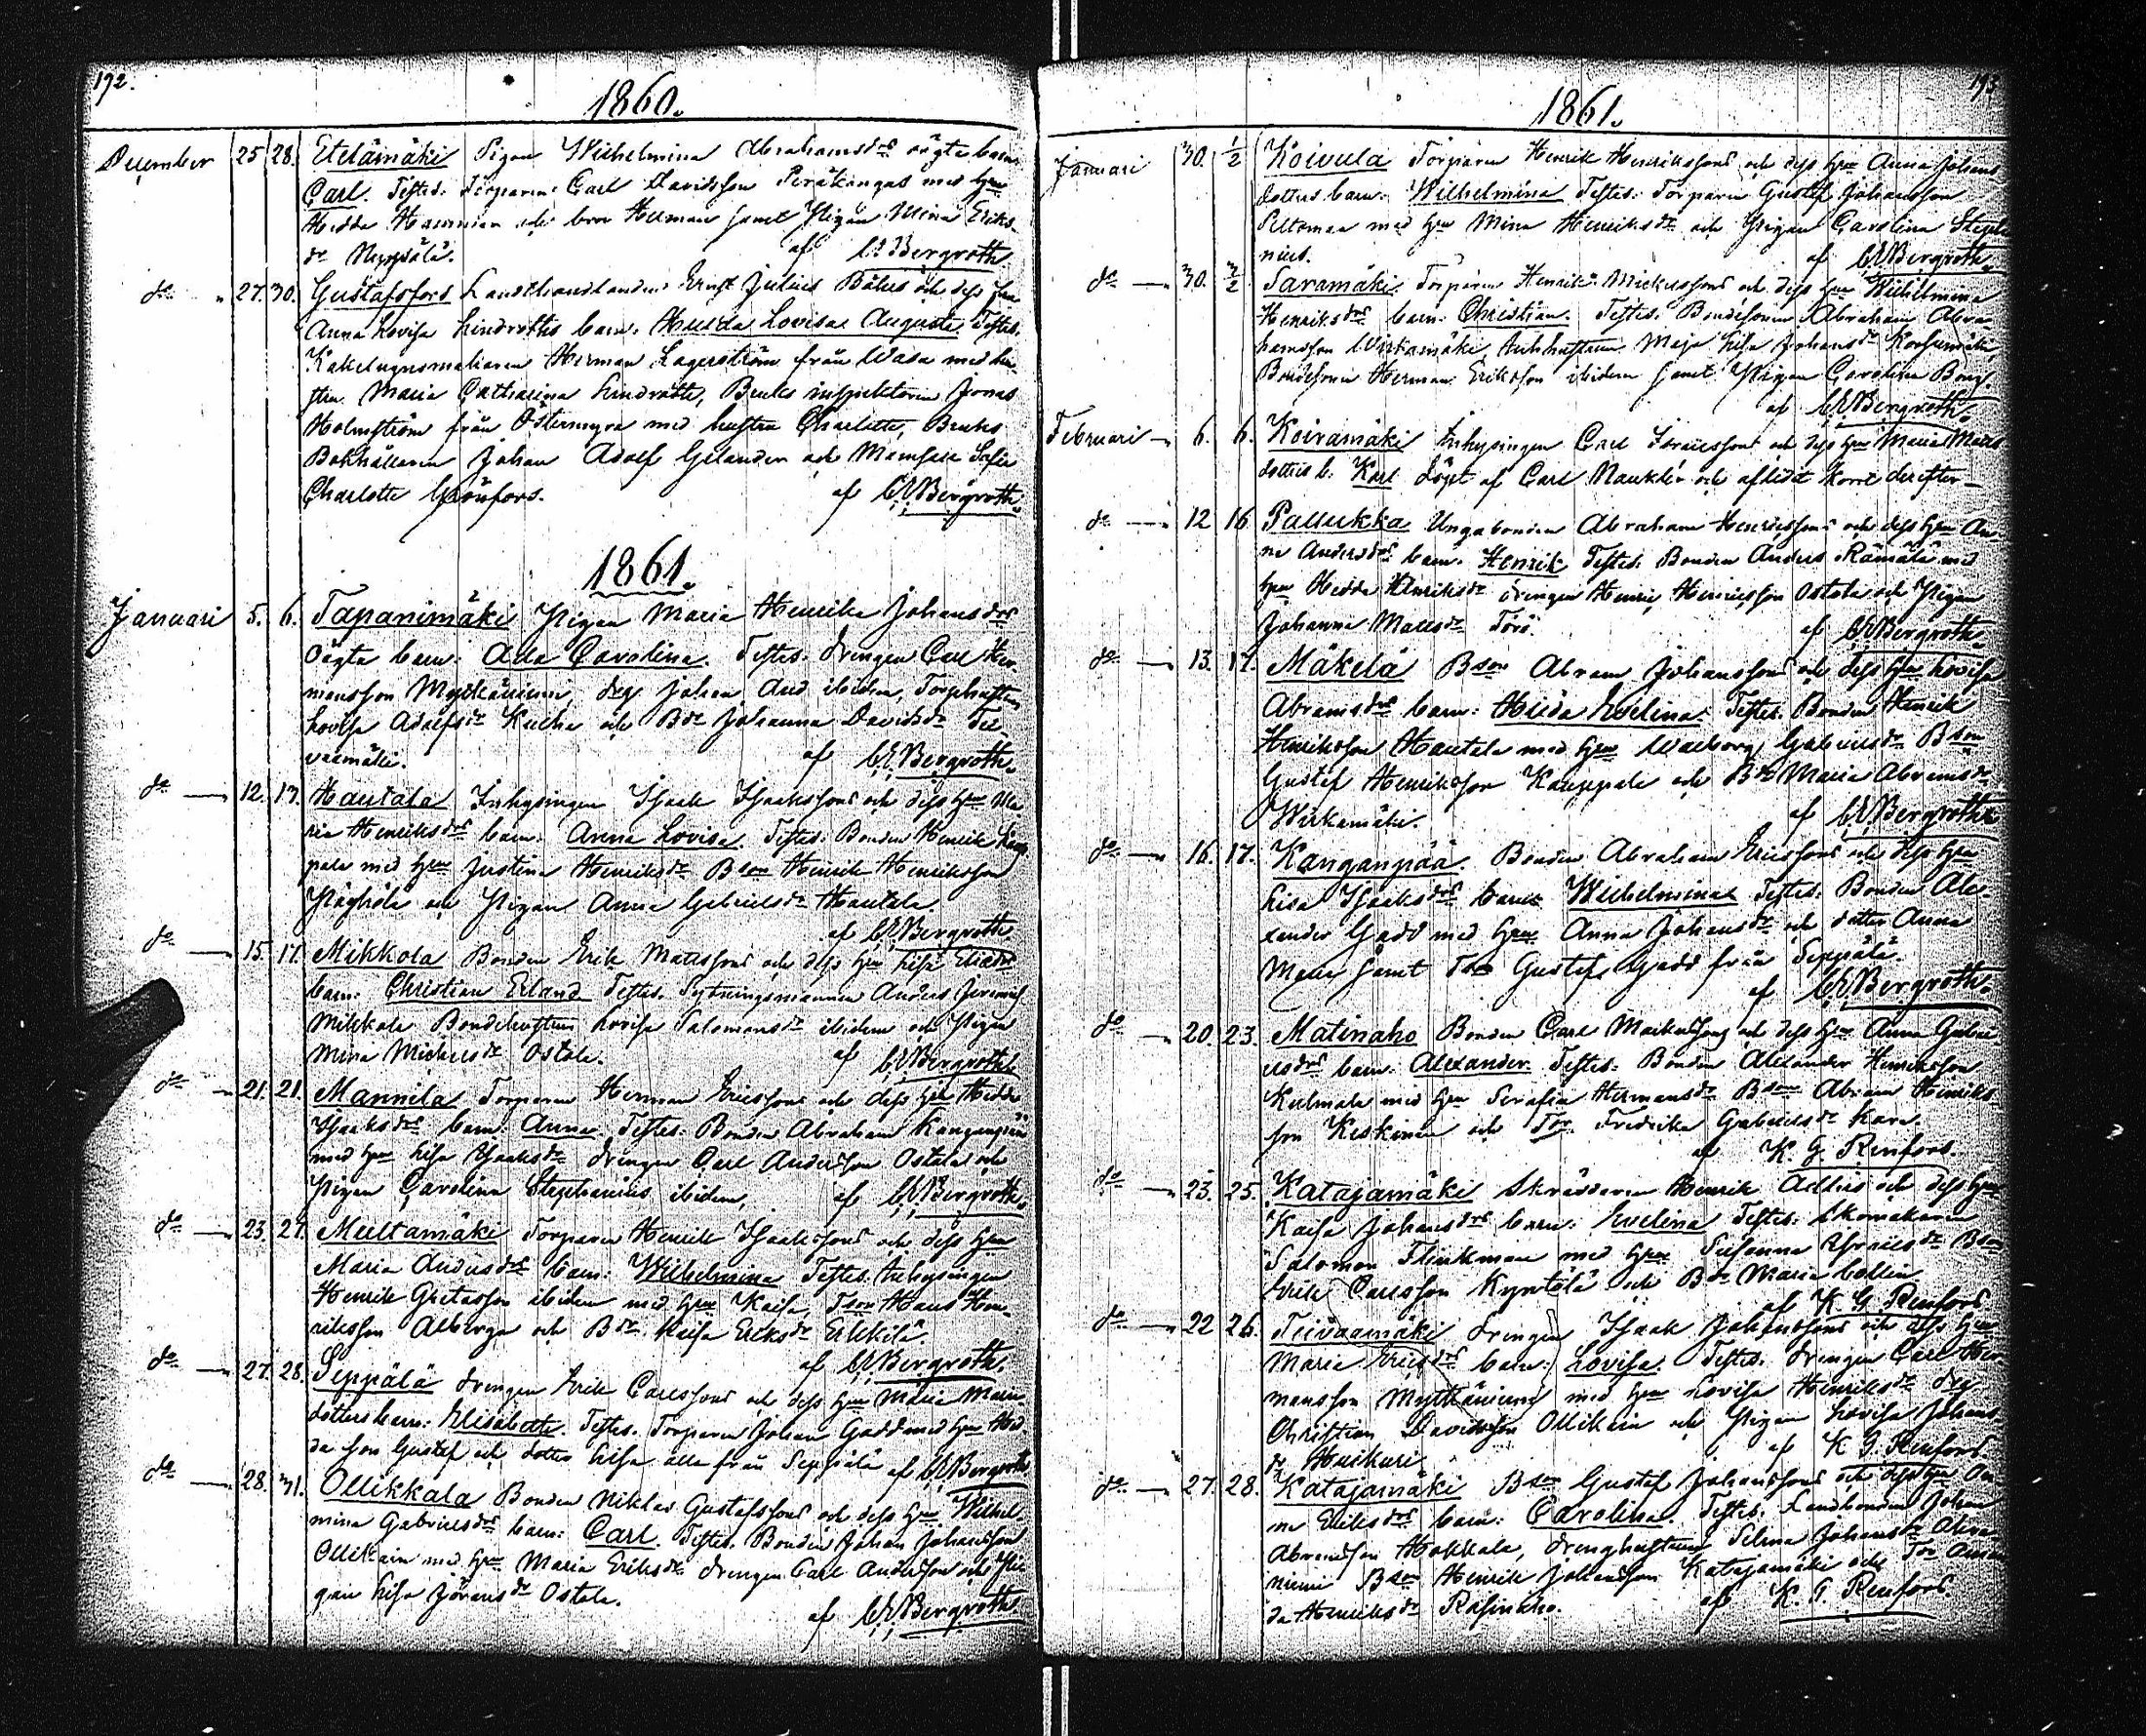 192.
1860.
December 25 28. Etelämäki Pigan Wilhelmina Abrahamsdrs oägta barn
Carl. Testes: Torparen Carl Davidsson Peräkangas med hu
Hedda och bror Herman samt Pigan Mina Eriks-
dr Neppälä. af C.E. Bergroth.
do 27. 30. Gustafsfors Landthandlanden Ernst Julius och dess fru
Anna Lovisa Lindroths barn. Hulda Lovisa Augusta. Testes:
Kakelugnsmakaren Herman Lagerström från Wasa med hu-
stru Maria Catharina Lindroth, Bruks inspektoren Jonas
Holmström från Östermyra med hustru Charlotte, Bruks
Bokhållaren Johan Adolf Gelander och Mamsell Sofia
Charlotte Grönfors. af C.E. Bergroth.
1861.
Januari 5. 6. Tapanimäki Pigan Maria Henrika Johansdrs
Oägta barn: Ada Carolina. Testes: drengen Carl Her-
mansson Mylläniemi, drg Johan And ibidem, Torphustrun
Lovisa Adolfsdr och Bdr Johanna Davidsdr
af C.E. Bergroth.
do 12. 13. Hautala Inhysingen Isaak Isaakssons och dess hu Ma-
ria Henriksdrs barn: Anna Lovisa. Testes: Bonden Henrik
pala med hu Justina Henriksdr Bson Henrik Henriksson
och Pigan Anna Gabrielsdr Hautala.
af C.E. Bergroth.
do 15. 17. Mikkola Bonden Erik Matssons och dess hu Lisa Eliædrs
barn: Christian Erland Testes: Sytningsmannen Anders
Mikkola Bondehustrun Lovisa Salomonsdr ibidem och Pigan
Mina Michelsdr Ostola. af C.E. Bergroth.
do 21. 21. Mannila Torparen Herman Ericssons och dess hu Hedda
Isaaksdrs barn: Anna Testes: Bonden Abraham Kanganpää
med hu Lisa Isaaksdr drengen Carl Andersson Ostola och
Pigan Carolina Stephanius ibidem, af C.E. Bergroth.
do 23. 27. Multamäki Torparen Henrik Isaakssons och dess hu
Maria Andersdrs barn: Wilhelmina Testes: Inhysingen
Henrik Gretasson ibidem med hu Kaisa, Tson Hans Hen-
riksson Alberga och Bdr Kaisa Eriksdr Erkkilä.
af C.E. Bergroth.
do 27. 28. Seppälä drengen Erik Carlssons och dess hu Maria
dotters barn: Elisabeth. Testes: Torparen Johan Gadd med hu Hed-
da son Gustaf och dotter Lisa alla från Seppälä af C.E. Bergroth
do 28. 31. Ollikkala Bonden Niklas Gustafssons och dess hu Wilhel-
mina Gabrielsdrs barn: Carl. Testes: Bonden Johan Johansson
Ollikain med hu Maria Eriksdr drengen Carl Andersson och Pi-
gan Lisa Jöransdr Ostola.
af C.E. Bergroth.
193
1861.
Januari 30. 1/2 Koivula Torparen Henrik Henrikssons och dess hu Anna Johans-
dotters barn: Wilhelmina Testes: Torparen Gustaf Johansson
Peltomaa med hu Mina Henriksdr och Pigan Carolina Stepha-
nius. af C.E. Bergroth.
do 30. 2/2 Saramäki Torparen Henrik Mickelssons och dess hu Wilhelmina
Henriksdrs barn: Christian. Testes: Bondesonen Abraham Abra-
hamsson Wirkamäki, Inhhustrun Maja Lisa Johansdr
Bondesonen Herman Eriksson ibidem samt Pigan Carolina Borg.
af C.E. Bergroth.
Februari 6. 6. Koiramäki Inhysingen Carl och dess hu Maria Mats-
dotters b. Karl döpt af Carl Nauklér och aflidit kort derefter
do 12 16 Pallukka Ungabonden Abraham Henricssons och dess hu An-
na Andersdrs barn: Henrik Testes: Bonden Anders Rämälä med
hu Hedda Henriksdr drengen Henric Henricsson Ostola och Pigan
Johanna Matsdr Törö. af C.E. Bergroth.
do 13. 17. Mäkelä Bson Abram Johanssons och dess hu Lovisa
Abramsdrs barn: Hilda Evelina. Testes: Bonden Henrik
Henriksson Hautala med hu Walborg Gabrielsdr Bson
Gustaf Henriksson Kauppala och Bdr Maria Abramsdr
Wirkamäki. af C.E. Bergroth.
do 16. 17. Kanganpää. Bonden Abraham Ericssons och dess hu
Lisa Isaaksdrs barn: Wilhelmina Testes: Bonden Ale-
xander Gadd med hu Anna Johansdr och dotter Anna
Maria samt Gustafs Gadd från Seppälä.
af C.E. Bergroth.
do 20. 23. Matinaho Bonden Carl och dess hu Anna Gabri-
elsdrs barn: Alexander. Testes: Bonden Alexander Henriksson
Kulmala med hu Serafia Hermansdr Bson Abram Henriks-
son Keskinen och Tdr Fredrika Gabrielsdr
af K. G. Renfors.
do 23. 25. Katajamäki Skräddaren Henrik Adlers och dess hu
Kaisa Johansdrs barn: Evelina Testes: Skomakaren
Salomon Flinkman med hu Susanna Bson
Erik Carlsson Kyntölä och Bdr Maria Collin
af K. G. Renfors
do 22 26. Teivaamäki drengen Isaak Johanssons och dess hu
Maria Ericsdrs barn: Lovisa. Testes: drengen Carl Her-
mansson Myllyniemi med hu Lovisa Henriksdr drg
Christian Davidsson Ollikain och Pigan Lovisa Johans-
dr Huikuri af K. G. Renfors.
do 27. 28. Katajamäki Bson Gustaf Johanssons och dess hu An-
na Eriksdrs barn: Carolina. Testes: Landbonden Johan
Abramsson Hokkala, drenghustrun Selma Johansdr
niemi Bson Henrik Johansson Katajamäki och Tdr
da Henriksdr Rasinaho. af K. G. Renfors.